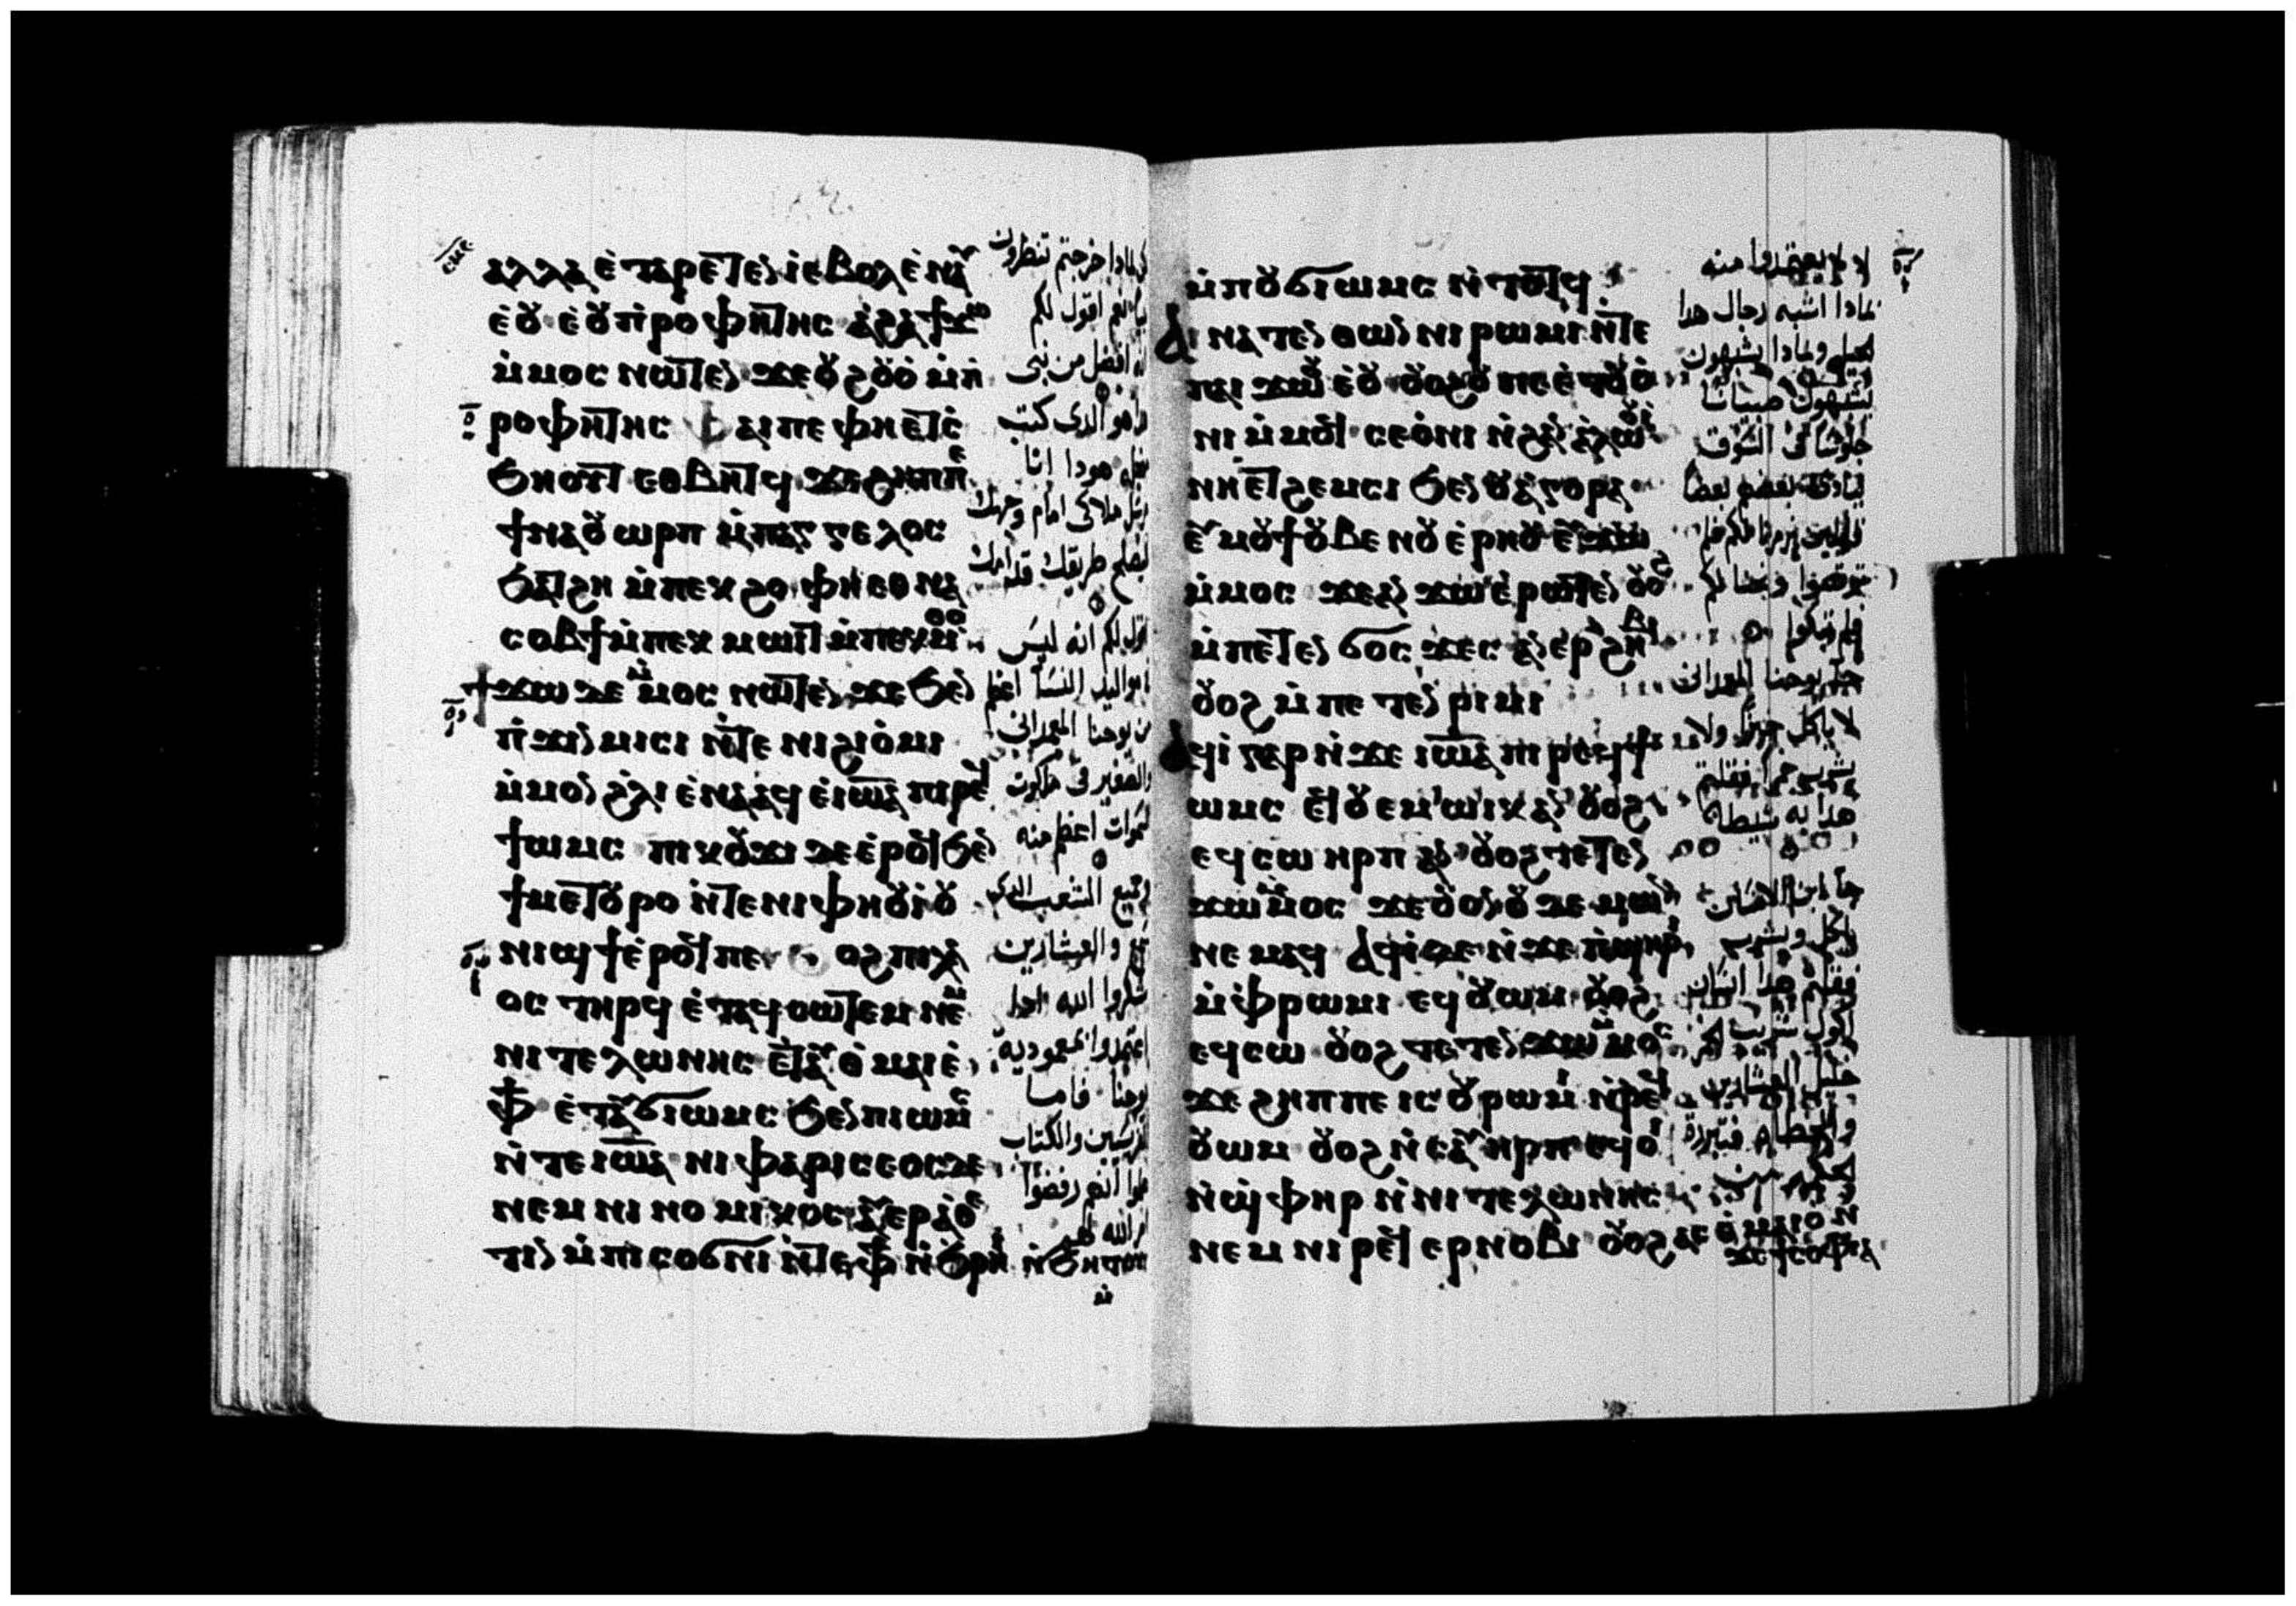 ⲁⲗⲗⲁ ⲉⲧⲁⲣⲉⲧⲉⲛⲓ ⲉⲃⲟⲗ ⲉⲛⲁⲩ
ⲉⲟⲩ ⲉⲟⲩⲡⲣⲟⲫⲏⲧⲏⲥ ⲁϩⲁ ϯϫⲱ
ⲙ̀ⲙⲟⲥ ⲛⲱⲧⲉⲛ ϫⲉ ⲟⲩϩⲟⲩⲟ̀ ⲙ̀ⲡ̀
ⲣⲟⲫⲏⲧⲏⲥ ⲫⲁⲓ ⲡⲉ ⲫⲏⲉⲧⲥ̀
ϧⲏⲟⲩⲧ ⲉⲑⲃⲏⲧϥ ϫⲉ ϩⲏⲡⲡⲉ
ϯⲛⲁⲟⲩⲱⲣⲡ ⲙ̀ⲡⲁⲁⲅⲅⲉⲗⲟⲥ
ϧⲁⲧϩⲏ ⲙ̀ⲡⲉⲕϩⲟ ⲫⲏⲉⲑⲛⲁ
ⲥⲟⲃϯ ⲙ̀ⲡⲉⲕⲙⲱⲓⲧ ⲙ̀ⲡⲉⲕⲙ̀ⲑⲟ
ϯϫⲱ ⲇⲉ ⲙ̀ⲙⲟⲥ ⲛⲱⲧⲉⲛ ϫⲉ ϧⲉⲛ
ⲡ̀ϫⲓⲛⲙⲓⲥⲓ ⲛ̀ⲧⲉ ⲛⲓϩⲓⲟ̀ⲙⲓ
ⲙ̀ⲙⲟⲛ ϩ̀ⲗⲓ ⲉⲛⲁⲁϥ ⲉ̀ⲓⲱⲁ ⲡⲓⲣⲉϥ
ϯⲱⲙⲥ ⲡⲓⲕⲟⲩϫⲓ ⲇⲉ ⲉ̀ⲣⲟϥ ϧⲉⲛ
ϯⲙⲉⲧⲟⲩⲣⲟ ⲛ̀ⲧⲉ ⲛⲓⲫⲏⲟⲩⲓ̀ ⲟⲩ
ⲛⲓϣϯ ⲉ̀ⲣⲟϥ ⲡⲉ ⲟϩ ⲡⲓⲗⲁ
ⲟⲥ ⲧⲏⲣϥ ⲉ̀ⲧⲁϥⲥⲱⲧⲉⲙ ⲛⲉⲙ
ⲛⲓⲧⲉⲗⲱⲛⲏⲥ ⲁⲩⲑ̀ⲙⲁⲓⲉ̀
ⲫϯ ⲉ̀ⲧⲁⲩϭⲓⲱⲙⲥ ϧⲉⲛ ⲡⲓⲱⲙⲥ
ⲛ̀ⲧⲉ ⲓⲱⲁ ⲛⲓⲫⲁⲣⲓⲥⲉⲟⲥ ⲇⲉ
ⲛⲉⲙ ⲛⲓⲛⲟⲙⲓⲕⲟⲥ ⲁⲩⲉⲣⲁⲑⲉ
ⲧⲓⲛ ⲙ̀ⲡⲓⲥⲟϭⲛⲓ ⲛ̀ⲧⲉ ⲫϯ ⲛ̀ϧⲣⲏⲓ ⲛ̀ϧⲏⲧⲟⲩ
لماذا خرجتم تنظرون
نبيا نعم اقول لكم
انه افضل من نبي
هذا هو الذي كتب
هودا انا
ملاكي امام وجهك
ليصلح طريقك قدامك
اقول لكم انه ليس
مواليد النسا اعظم
من يوحنا المعمداني
والصغير في ملكوت
السموات اعظم منه
وجميع الشعب الذي
والعشارين
شكروا الله
اعتمدوا بمعمودية
يوحنا فاما
الفريسين والكتاب
انهم رفضوا
امر الله
ⲙ̀ⲡⲟⲩϭⲓⲱⲙⲥ ⲛ̀ⲧⲟⲧϥ
ⲁⲓⲛⲁⲧⲉⲛⲑⲱⲛ ⲛⲓⲣⲱⲙⲓ ⲛ̀ⲧⲉ
ⲧⲁⲓ ϫⲱⲟⲩ ⲉ̀ⲟⲩ ⲟⲩⲟϩ ⲟⲩ ⲡⲉ ⲉⲧⲟⲩⲟ̀
ⲛⲓ ⲙ̀ⲙⲟϥ ⲥⲉⲟ̀ⲛⲓ ⲛ̀ϩⲁⲛⲁ̀ⲗⲱⲟⲩⲓ̀
ⲛⲏⲉⲧϩⲉⲙⲥⲓ ϧⲉⲛ ⲟⲩⲁⲅⲟⲣⲁ
ⲉⲩⲙⲟⲩϯ ⲟⲩⲃⲉ ⲛⲟⲩⲉ̀ⲣⲏⲟⲩ ⲉⲩϫⲱ
ⲙ̀ⲙⲟⲥ ϫⲉ ⲁⲛϫⲱ ⲉ̀ⲣⲱⲧⲉⲛ ⲟⲩⲟϩ
ⲙ̀ⲡⲉⲧⲉⲛϭⲟⲥϫⲉⲥ ⲁⲛⲉⲣϩⲏⲃⲓ
ⲟⲩⲟϩ ⲙ̀ⲡⲉⲧⲉⲛⲣⲓⲙⲓ
ⲁϥⲓ̀ ⲅⲁⲣ ⲛ̀ϫⲉ ⲓⲱⲁ ⲡⲓⲣⲉϥϯ
ⲱⲙⲥ ⲉϥⲟⲩⲉⲙ ⲱⲓⲕ ⲁⲛ ⲟⲩⲟϩ
ⲉϥⲥⲱ ⲏⲣⲡ ⲁⲛ ⲟⲩⲟϩ ⲧⲉⲧⲉⲛ
ϫⲱⲙ̀ⲙⲟⲥ ϫⲉ ⲟⲩⲟⲛ ⲟⲩⲇⲉⲙⲱⲛ
ⲛⲉⲙⲁϥ ⲁϥⲓ̀ ⲇⲉ ⲛ̀ϫⲉ ⲡ̀ϣⲏⲣⲓ
ⲙ̀ⲫⲣⲱⲙⲓ ⲉϥⲟⲩⲱⲙ ⲟⲩⲟϩ
ⲉϥⲥⲱ ⲟⲩⲟϩ ⲧⲉⲧⲉⲛϫⲱⲙ̀ⲙⲟⲥ
ϫⲉ ϩⲏⲡⲡⲉ ⲓⲥ ⲟⲩⲣⲱⲙⲓ ⲛ̀ⲣⲉϥ
ⲟⲩⲱⲙ ⲟⲩⲟϩ ⲛ̀ⲥⲁⲩⲏⲣⲡ ⲉϥⲟⲓ
ⲛ̀ϣ̀ⲫⲏⲣ ⲛ̀ⲛⲓⲧⲉⲗⲱⲛⲏⲥ
ⲛⲉⲙ ⲛⲓⲣⲉϥⲉⲣⲛⲟⲃⲓ ⲟⲩⲟϩ ⲁⲥⲑ̀ⲙⲁⲓⲟ ⲛ
ϫⲉ ϯⲥⲟⲫⲓⲁ
لم يعتمدوا منه
بماذا اشبه رجال هذا
الجيل وبماذا يشبهون
يشبهون صبيانا
جلوسا في السوق
ينادي بعضهم بعضا
زمرنا لكم فلم
ترقصوا ونحنا لكم
فلم تبكوا
جا يوحنا المعمداني
لا ياكل خبزا ولا
يشرب خمرا فقلتم
هذا به شيطان
جا ابن الانسان
ياكل ويشرب
فقلتم هذا انسان
اكول شريب
خليل العشارين
والخطاه فتبررت